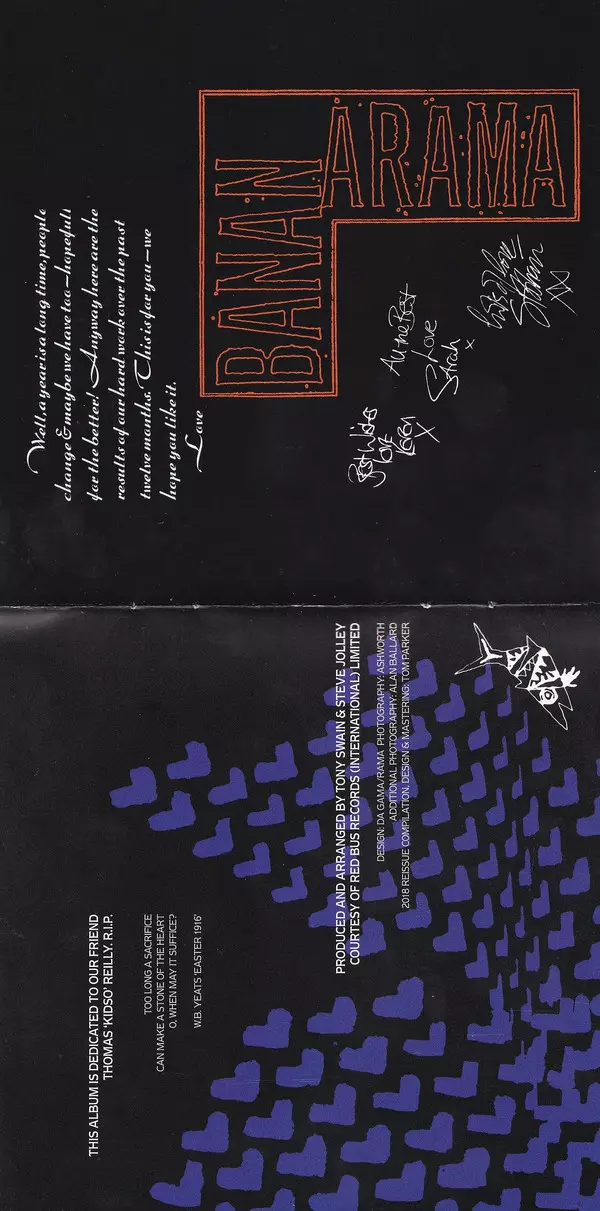 Well, a year is a long time, people
change & maybe we have too—hopefully
for the better! Anyway here are the
results of our hard work over the past
twelve months. This is for you—we
hope you like it.
Love
BANAN
ARAMA
Best Wishes
love
Keren
X
All the Best
Love
Sarah
x
Siobhan
XXX
THIS ALBUM IS DEDICATED TO OUR FRIEND
THOMAS 'KIDSO' REILLY. R.I.P.
TOO LONG A SACRIFICE
CAN MAKE A STONE OF THE HEART
O, WHEN MAY IT SUFFICE?
W.B. YEATS 'EASTER 1916'
PRODUCED AND ARRANGED BY TONY SWAIN & STEVE JOLLEY
COURTESY OF RED BUS RECORDS (INTERNATIONAL) LIMITED
DESIGN: DA GAMA/RAMA PHOTOGRAPHY: ASHWORTH
ADDITIONAL PHOTOGRAPHY: ALAN BALLARD
2018 REISSUE COMPILATION, DESIGN & MASTERING: TOM PARKER